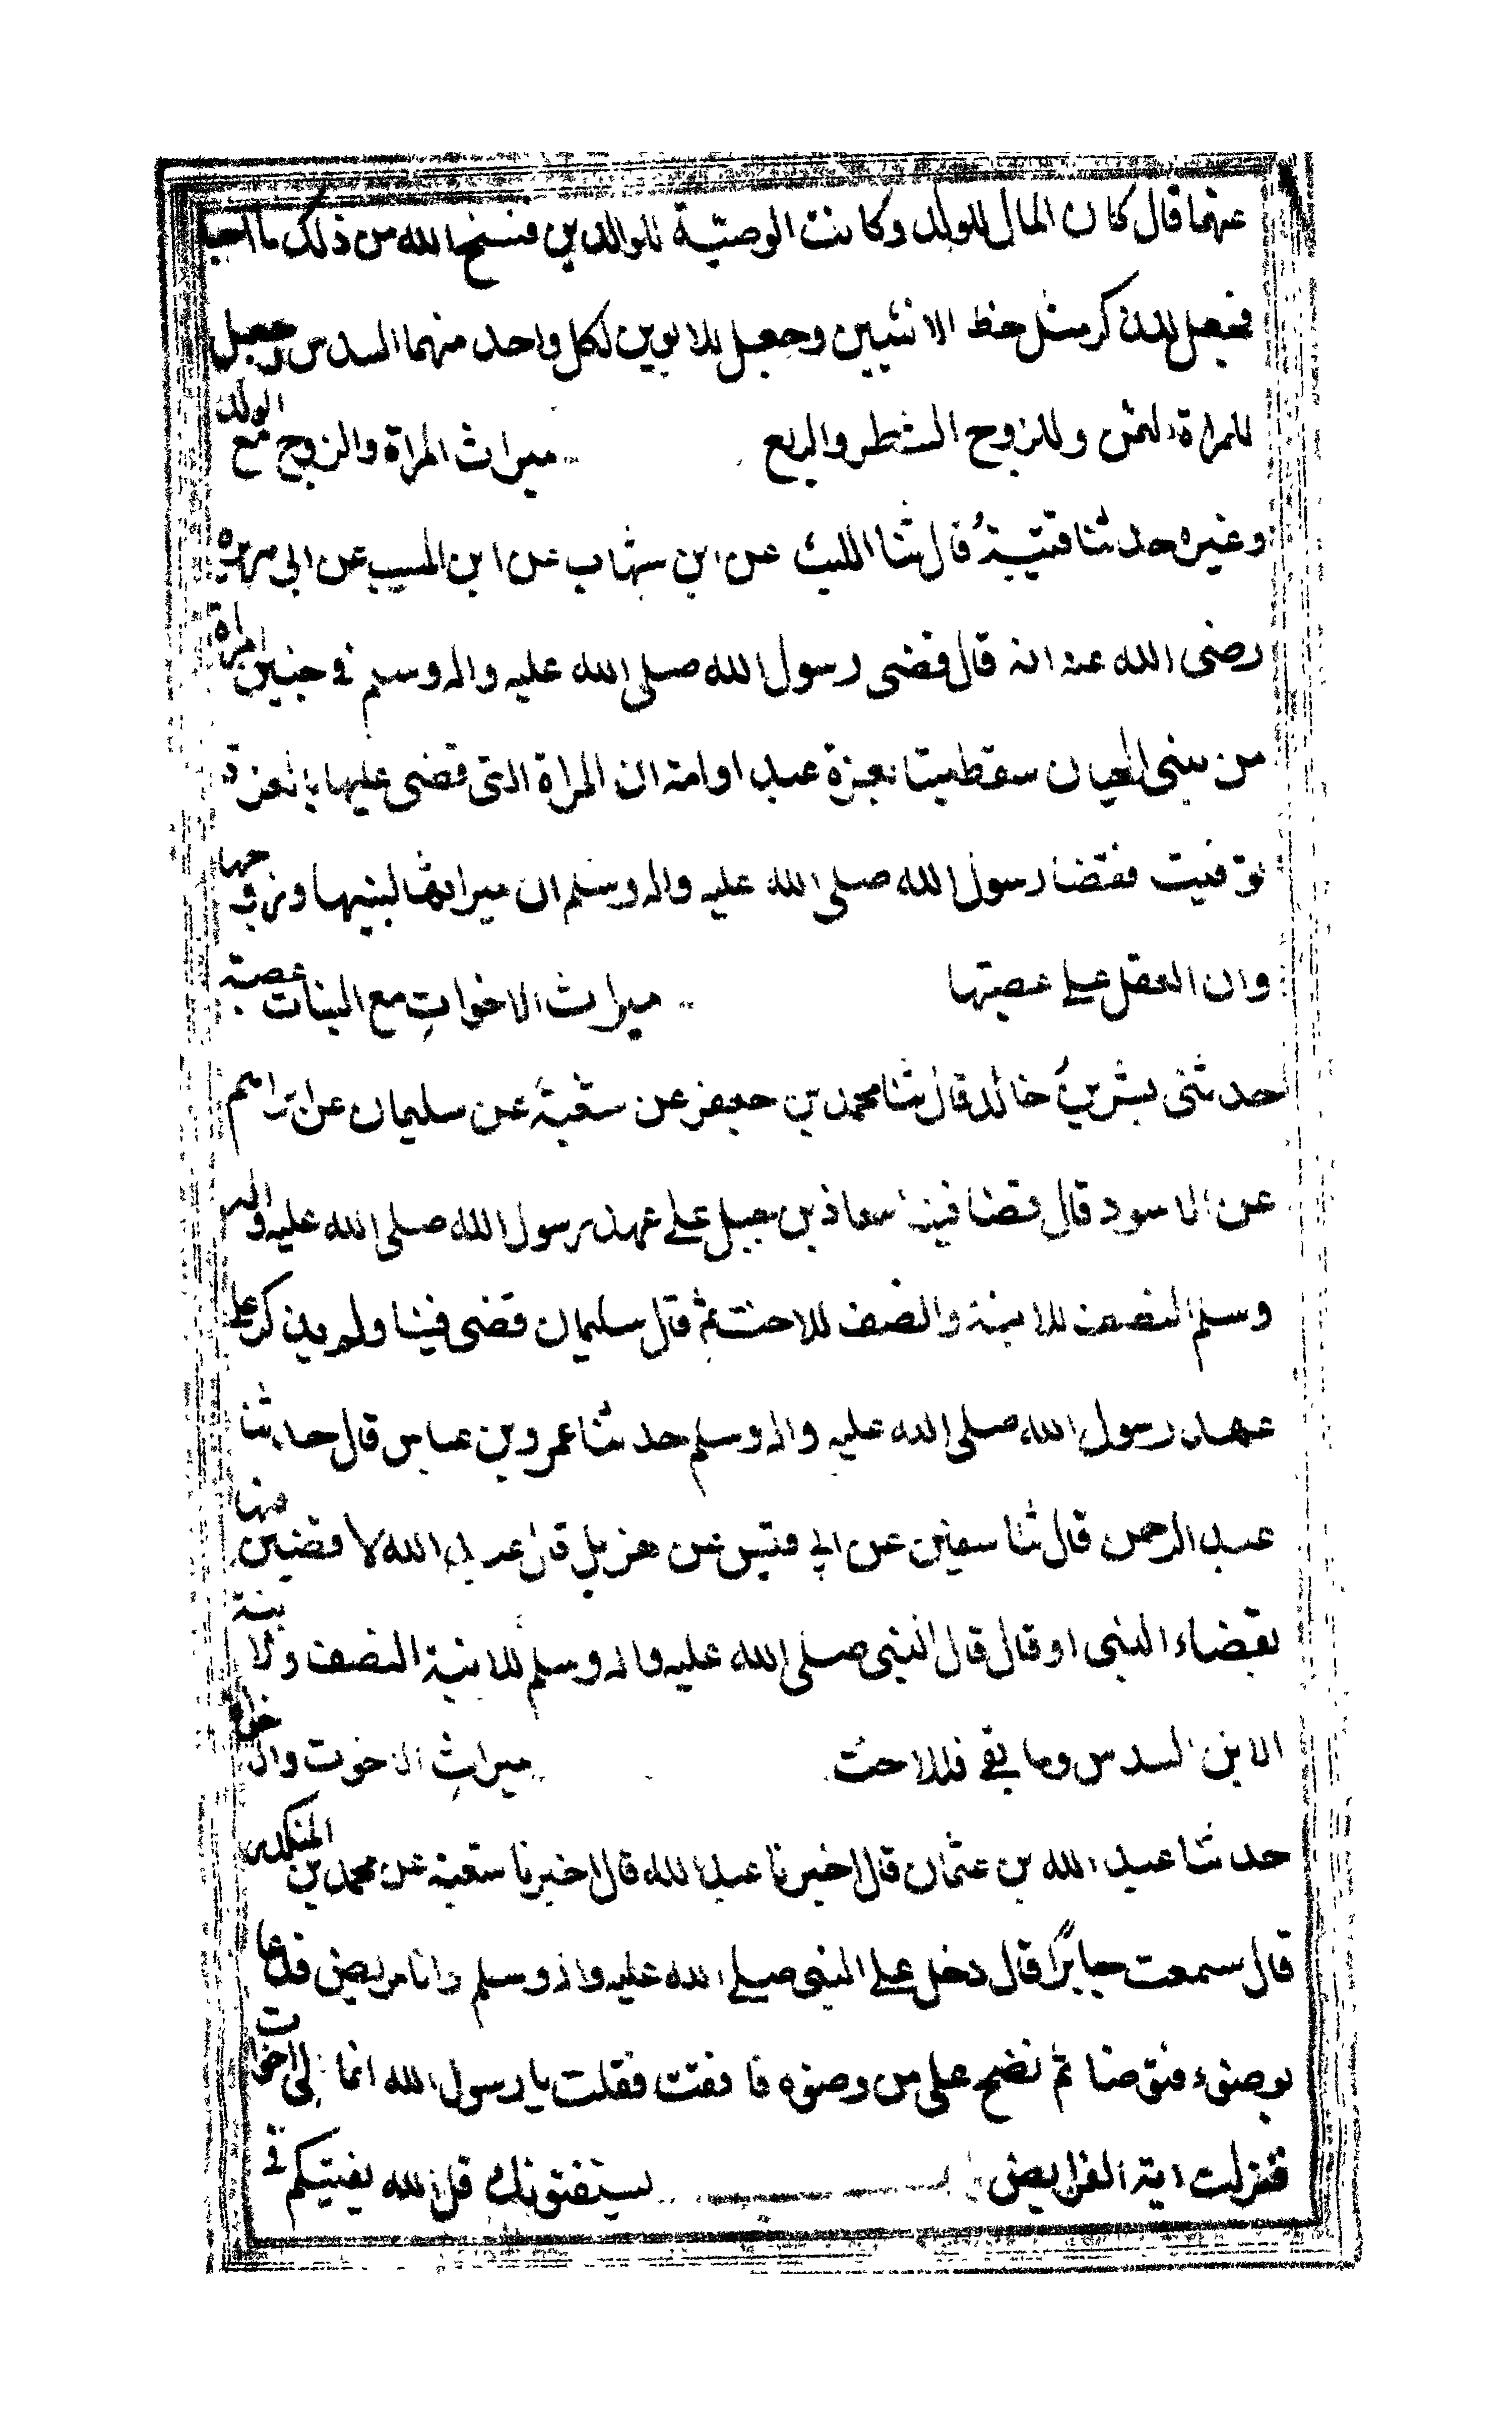 عنهما قال كان المال للولد وكانت الوصية للوالدين فنسخ الله من ذلك ما احب
فجعل للذكر مثل حظ الانثيين وجعل للابوين لكل واحد منهما السدس وجعل
للمراة الثمن وللزوج الشطر والربع ميراث المراة والزوج مع الولد
وغيره حدثنا قتيبة قال ثنا الليث عن ابن شهاب عن ابن المسيب عن ابي هريرة
رضى الله عنه انه قال قضى رسول الله صلى الله عليه واله وسلم في جنين امراة
من بنى لحيان سقط ميتا بغرة عبد او امة ان المراة التى قضى عليها بالغرة
توفيت فقضا رسول الله صلى الله عليه واله وسلم ان ميراثها لبنيها وزوجها
وان العقل على عصبتها ميراث الاخوات مع البنات عصبة
حدثنى بشر بن خالد قال ثنا محمد بن جعفر عن شعبة عن سليمان عن ابراهيم
عن الاسود قال قضا فينا معاذ بن جبل على عهد رسول الله صلى الله عليه واله
وسلم النصف للابنة والنصف للاخت ثم قال سليمان قضى فينا ولم يذكر على
عهد رسول الله صلى الله عليه واله وسلم حدثنا عمرو بن عباس قال حدثنا
عبد الرحمن قال ثنا سفين عن ابي قيس عن هزيل قال عبد الله لاقضين فيها
بقضاء النبى او قال قال النبى صلى الله عليه واله وسلم للابنة النصف ولابنة
الابن السدس وما بقي فللاخت ميراث الاخوت والاخوة
حدثنا عبد الله بن عثمان قال اخبرنا عبد الله قال اخبرنا شعبة عن محمد بن المنكدر
قال سمعت جابرًا قال دخل على النبى صلى الله عليه واله وسلم وانا مريض فدعا
بوضوء فتوضا ثم نضح على من وضوه فافقت فقلت يا رسول الله انما لى اخوات
فنزلت اية الفرايض يستفتونك قل الله يفتيكم في